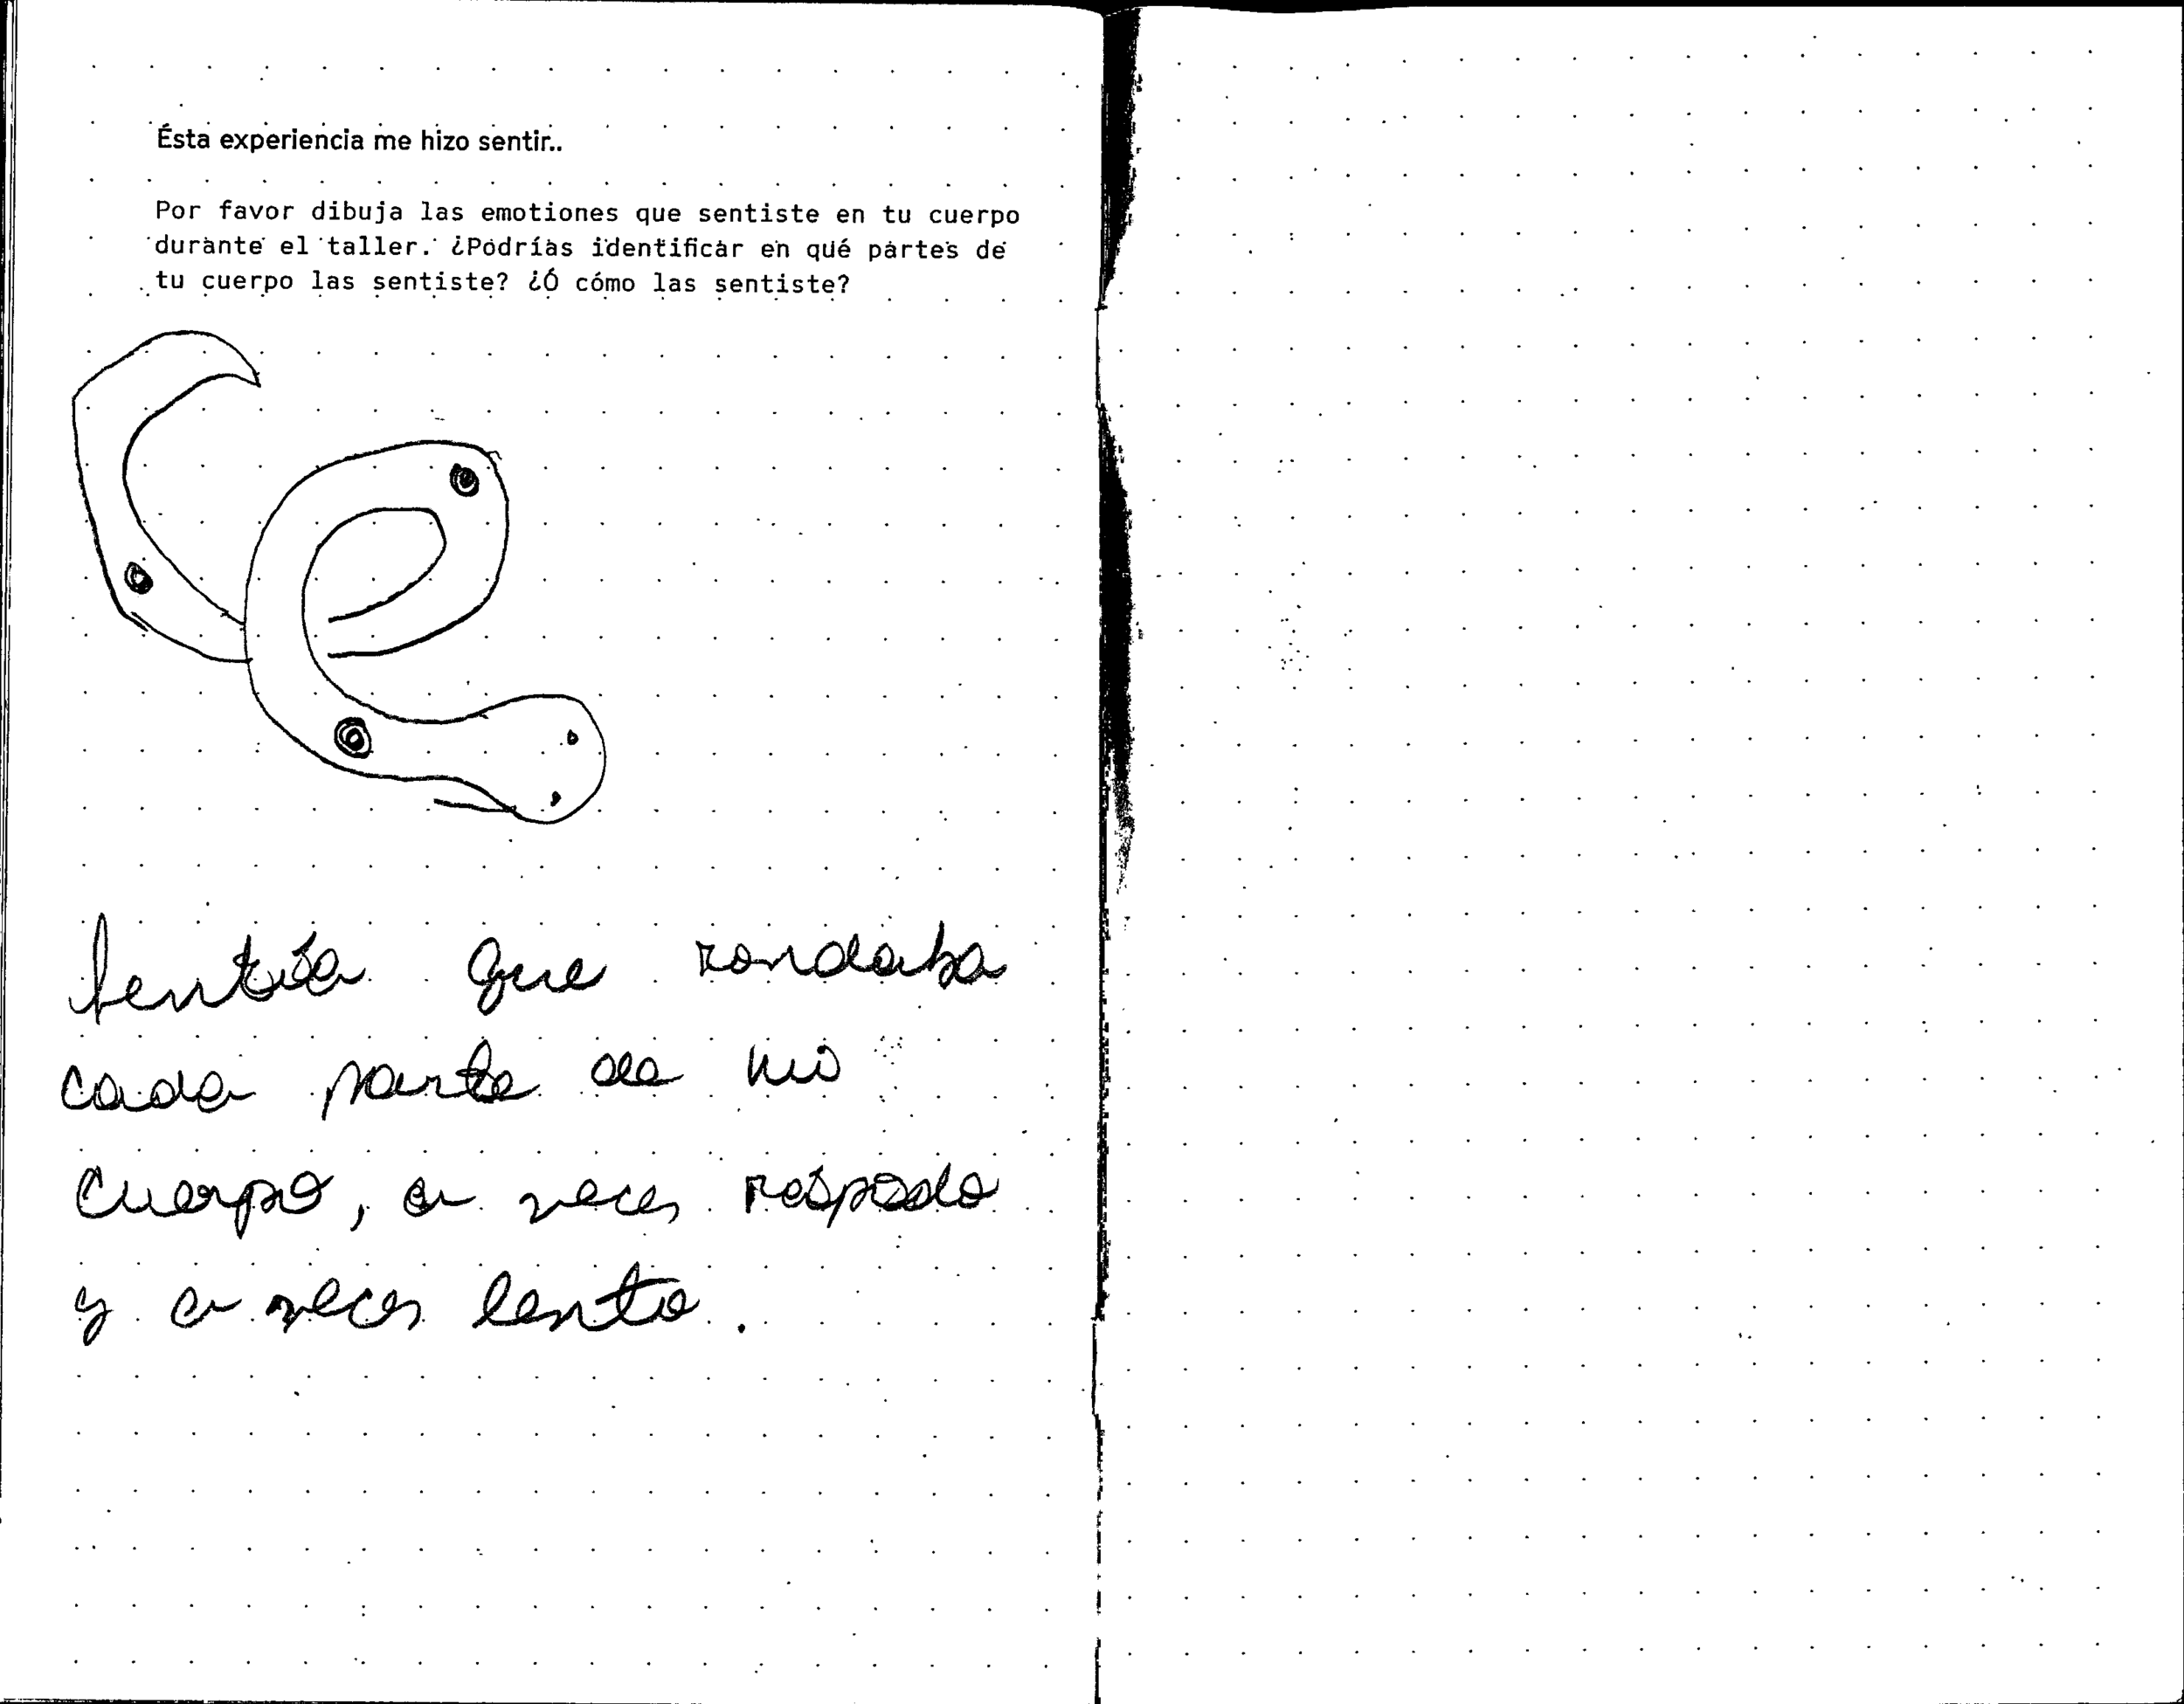 Ésta experiencia me hizo sentir..
Por favor dibuja las emotiones que sentiste en tu cuerpo
durante el taller. ¿Podrías identificar en qué partes de
tu cuerpo las sentiste? ¿Ó cómo las sentiste?
sentía que rondaba
cada parte de mi
cuerpo, a veces
y a veces lento.